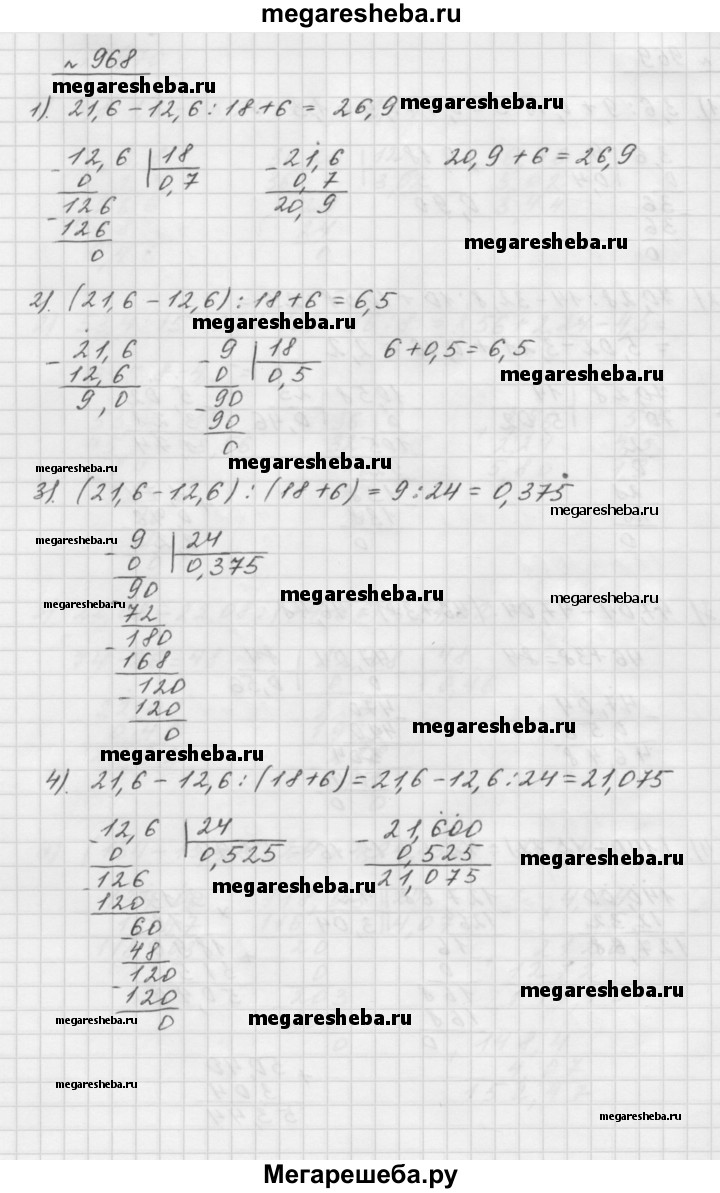 megaresheba.ru
№ 968
megaresheba.ru
1). 21,6 - 12,6 : 18 + 6 = 26,9
megaresheba.ru
12,6 | 18
0 0,7
126
126
0
- 21,6
0,7
20,9
20,9 + 6 = 26,9
megaresheba.ru
2). (21,6 - 12,6) : 18 + 6 = 6,5
megaresheba.ru
- 21,6
12,6
9,0
- 9 | 18
0 0,5
- 90
90
0
6 + 0,5 = 6,5
megaresheba.ru
megaresheba.ru
megaresheba.ru
3). (21,6 - 12,6) : (18 + 6) = 9 : 24 = 0,375
megaresheba.ru
megaresheba.ru
- 9 | 24
0 0,375
- 90
72
- 180
168
- 120
120
0
megaresheba.ru
megaresheba.ru
megaresheba.ru
megaresheba.ru
megaresheba.ru
4). 21,6 - 12,6 : (18 + 6) = 21,6 - 12,6 : 24 = 21,075
- 12,6 | 24
0 0,525
- 126
120
- 60
48
- 120
120
0
- 21,600
0,525
21,075
megaresheba.ru
megaresheba.ru
megaresheba.ru
megaresheba.ru
megaresheba.ru
megaresheba.ru
megaresheba.ru
Мегарешеба.ру